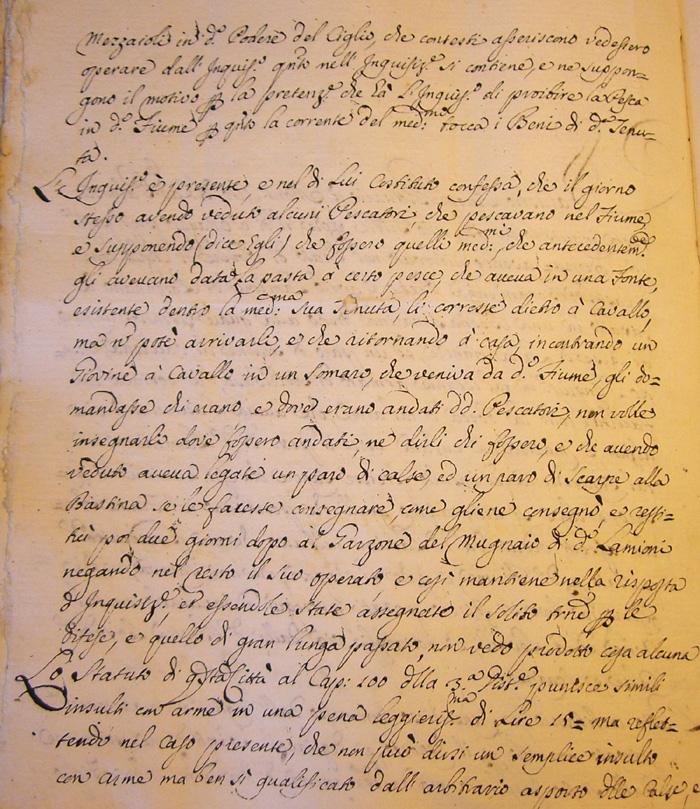 Mezzaioli in d.º Podere del Ciglio, che contesti asseriscono vedessero
operare dall'Inquis.º qnto nell'Inquisiz.e si contiene, e ne suppon-
gono il motivo p la pretenz.e che hà L'Inquis.º di proibire la Pesca
in d.º Fiume p qnto la corrente del med.mo tocca i Beni di d.ª Tenu-
ta.
L'Inquis.º è presente e nel di Lui Costituto confessa, che il giorno
stesso avendo veduto alcuni Pescatori, che pescavano nel Fiume
e supponendo (dice Egli) che fossero quelli med.mi, che antecedentem.te
gli avevano data la pasta à certo pesce, che aveva in una Fonte,
esistente dentro la med.ma sua Tenuta, li corresse dietro à Cavallo,
ma nº potè arrivarli, e che ritornando à casa, incontrando un
Giovine à Cavallo in un Somaro, che veniva da d.º Fiume, gli do=
mandasse chi erano e dove erano andati dd. Pescatori, non volle
insegnarli dove fossero andati, ne dirli chi fossero, e che avendo
veduto aveva legate un paro di calse, ed un paro di Scarpe alla
Bastina se le facesse consegnare, come gliene consegnò, e resti-
tuì poi due giorni dopo al Garzone del Mugnaio di d.º Lamioni
negando nel resto il suo operato e così mantiene nella risposta
d'Inquisiz.e et essendole state assegnato il solito trnê p le
difese, e quello di gran lunga passato, non vedo prodotto cosa alcuna
Lo Statuto di qsta Città al Cap: 100 dlla 3.ª Dist.e punisce simili
insulti con arme in una pena leggieriss.ma di Lire 15= ma reflet-
tendo nel caso presente, che non può dirsi un semplice insulto
con arme ma ben sì qualificato dall'arbitrario asporto dlle calse